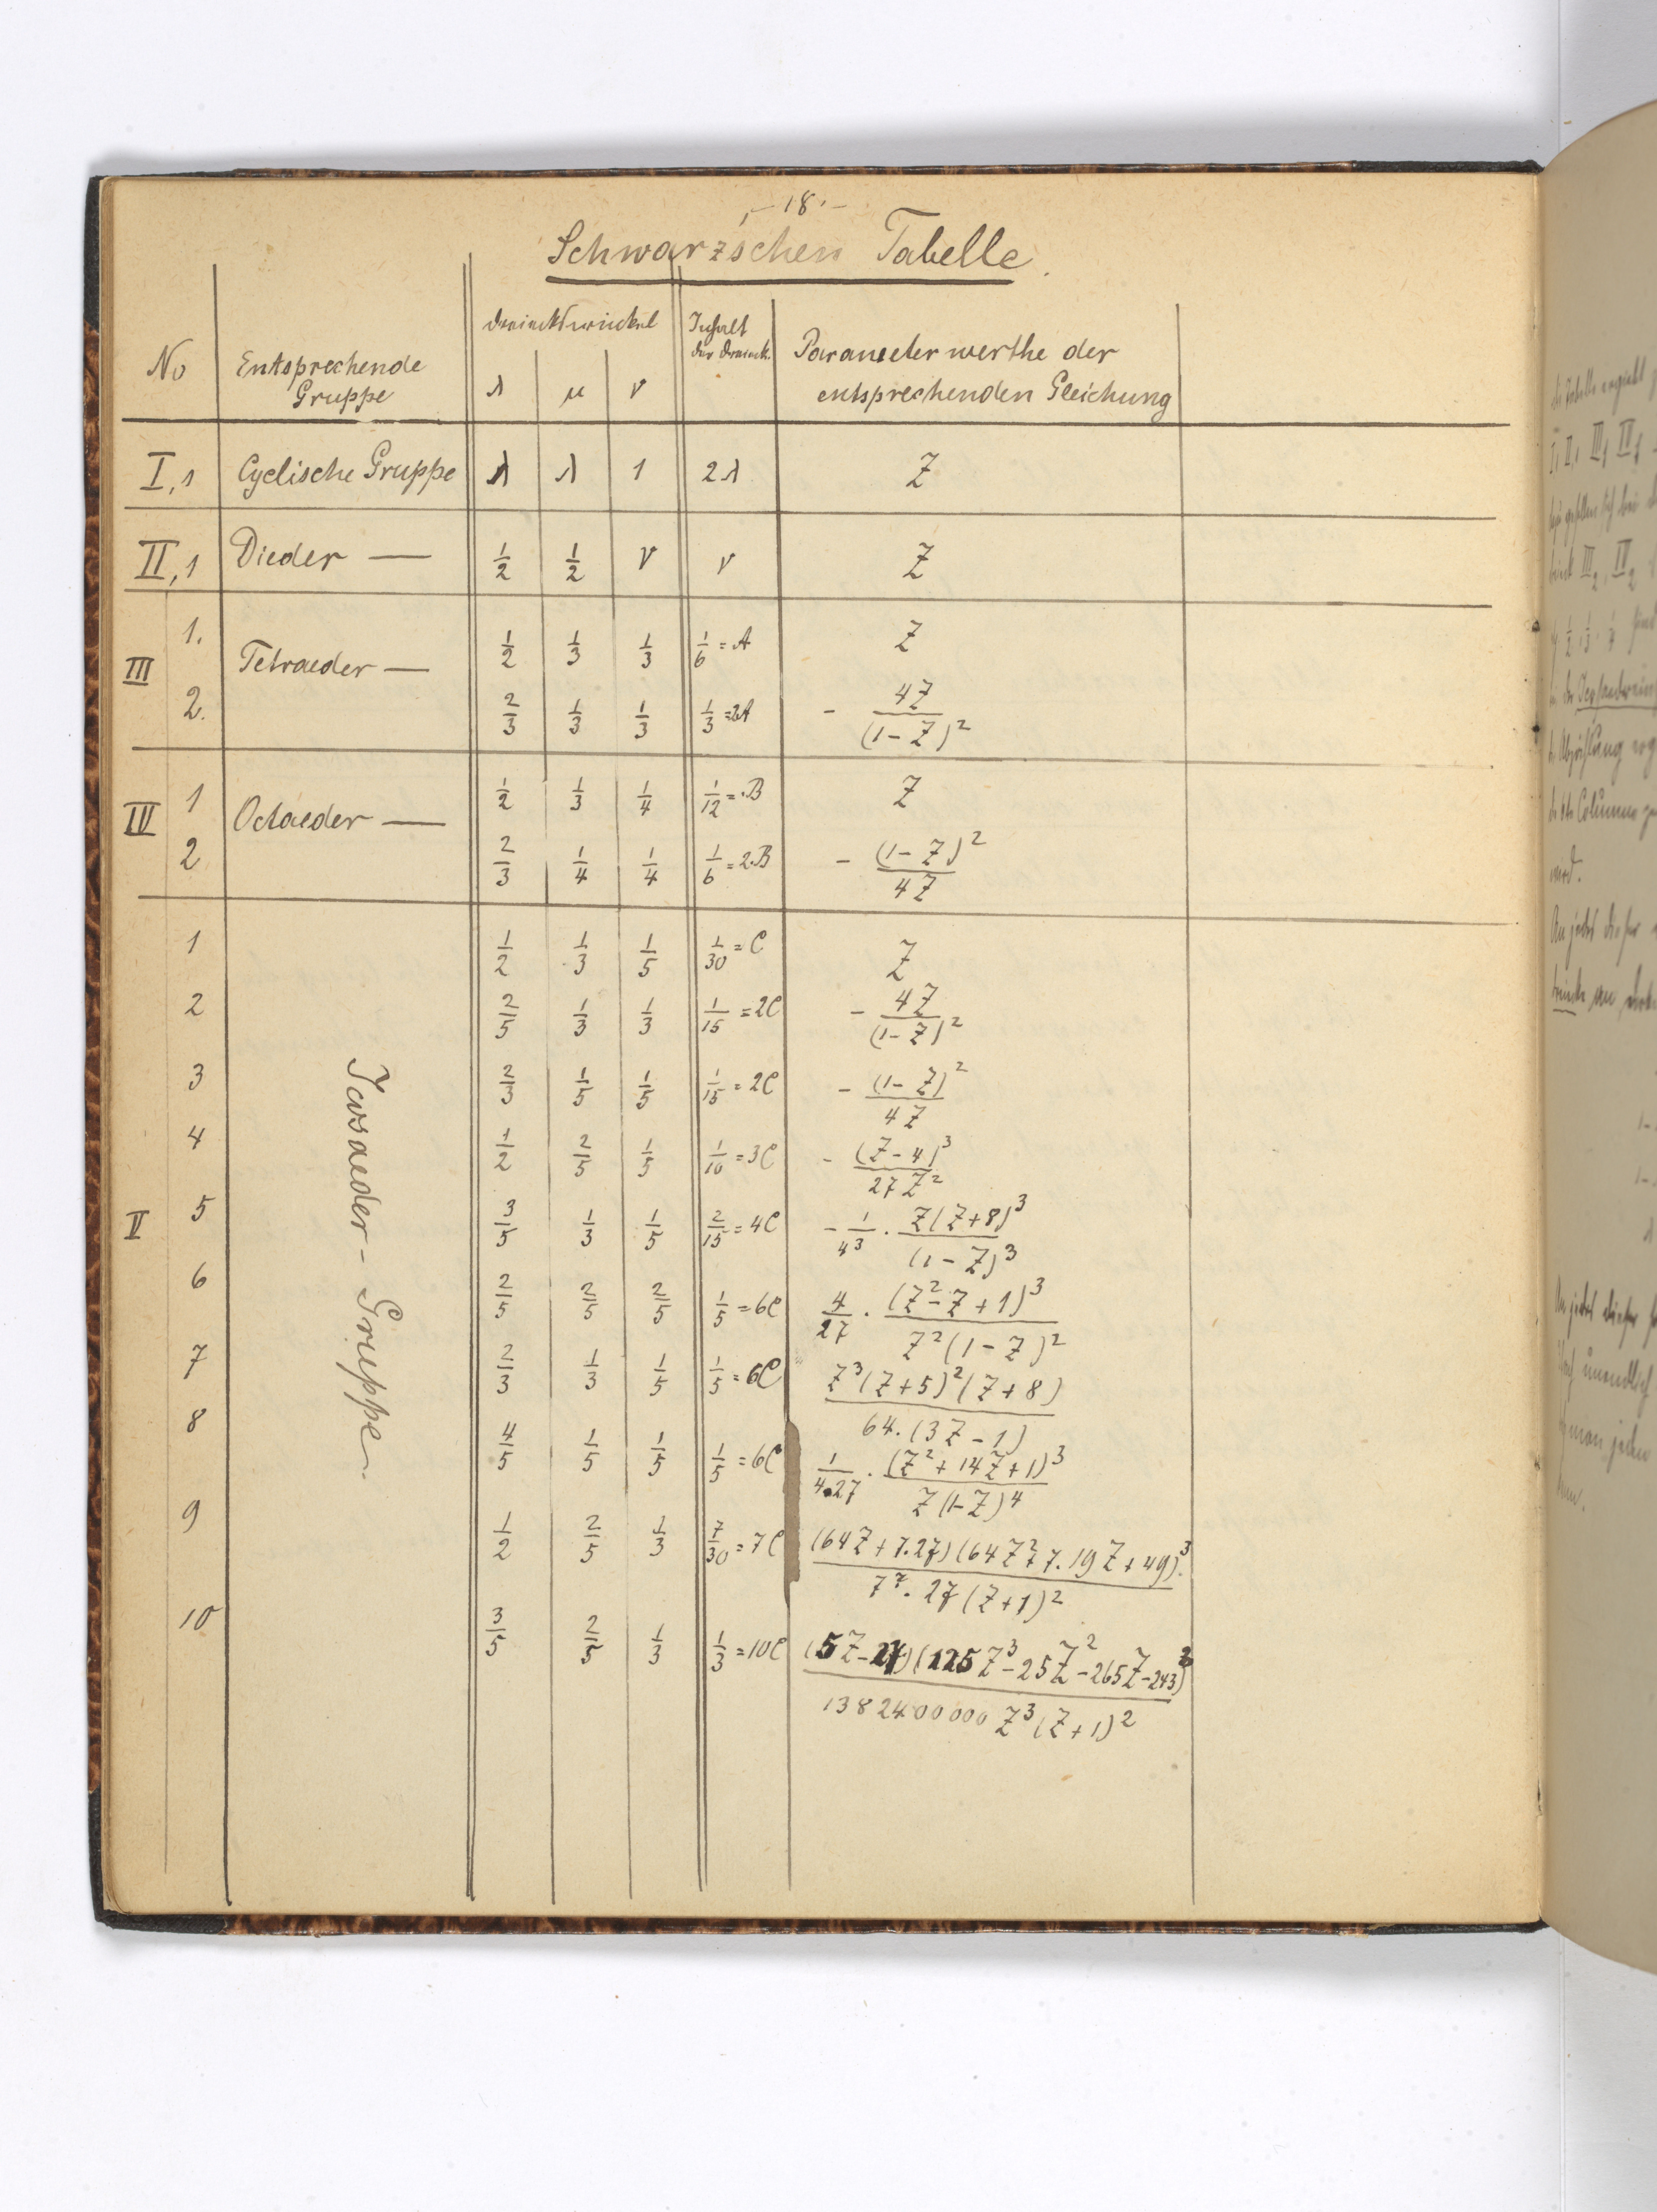 - 18. -
Schwarz'schen Tabelle.
No | Entsprechende Gruppe | Dreieckswinkel λ μ ν | Inhalt der Dreieck. | Parameterwerthe der entsprechenden Gleichung
I,1 | Cyclische Gruppe | λ | λ | 1 | 2λ | Z
II,1 | Dieder — | 1/2 | 1/2 | ν | ν | Z
III 1. | Tetraeder — | 1/2 | 1/3 | 1/3 | 1/6 = A | Z
2. | 2/3 | 1/3 | 1/3 | 1/3 = 2A | - 4Z/(1-Z)²
IV 1 | Octaeder — | 1/2 | 1/3 | 1/4 | 1/12 = B | Z
2 | 2/3 | 1/4 | 1/4 | 1/6 = 2B | - (1-Z)²/4Z
V | Icosaeder-Gruppe.
1 | 1/2 | 1/3 | 1/5 | 1/30 = C | Z
2 | 2/5 | 1/3 | 1/3 | 1/15 = 2C | - 4Z/(1-Z)²
3 | 2/3 | 1/5 | 1/5 | 1/15 = 2C | - (1-Z)²/4Z
4 | 1/2 | 2/5 | 1/5 | 1/10 = 3C | - (Z-4)³/27Z²
5 | 3/5 | 1/3 | 1/5 | 2/15 = 4C | - 1/4³ · Z(Z+8)³/(1-Z)³
6 | 2/5 | 2/5 | 2/5 | 1/5 = 6C | 4/27 · (Z²-Z+1)³/Z²(1-Z)²
7 | 2/3 | 1/3 | 1/5 | 1/5 = 6C | Z³(Z+5)²(Z+8)/64.(3Z-1)
8 | 4/5 | 1/5 | 1/5 | 1/5 = 6C | 1/4.27 · (Z²+14Z+1)³/Z(1-Z)⁴
9 | 1/2 | 2/5 | 1/3 | 7/30 = 7C | (64Z+7.27)(64Z²+7.19Z+49)³/7⁷.27(Z+1)²
10 | 3/5 | 2/5 | 1/3 | 1/3 = 10C | (5Z-27)(125Z³-25Z²-265Z-243)³/1382400000 Z³(Z+1)²